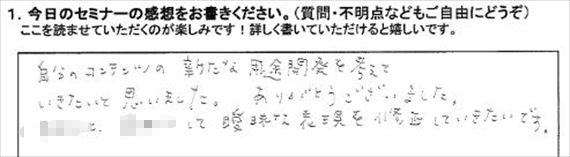 1. 今日のセミナーの感想をお書きください。(質問・不明点などもご自由にどうぞ)
ここを読ませていただくのが楽しみです！詳しく書いていただけると嬉しいです。
自分のコンテンツの新たな用途開発を考えて
いきたいと思いました。ありがとうございました。
して曖昧な表現を修正していきたいです。